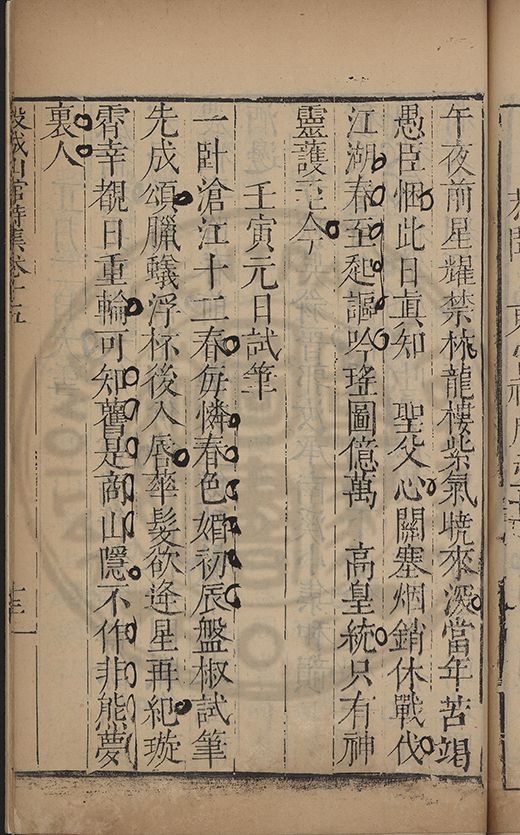 午夜前星耀禁林龍樓紫氣曉來深當年苦竭
愚臣悃此日真知　聖父心關塞烟銷休戰伐
江湖春至起謳吟瑤圖億萬　高皇統只有神
靈護至今
壬寅元日試筆
一卧滄江十二春每憐春色婚初辰盤椒試筆
先成頌臘蟻浮杯後入唇華髮欲逢星再紀璇
霄幸覩日重輪可知舊是商山隱不作非熊夢
裏人
穀城山館詩集卷十五